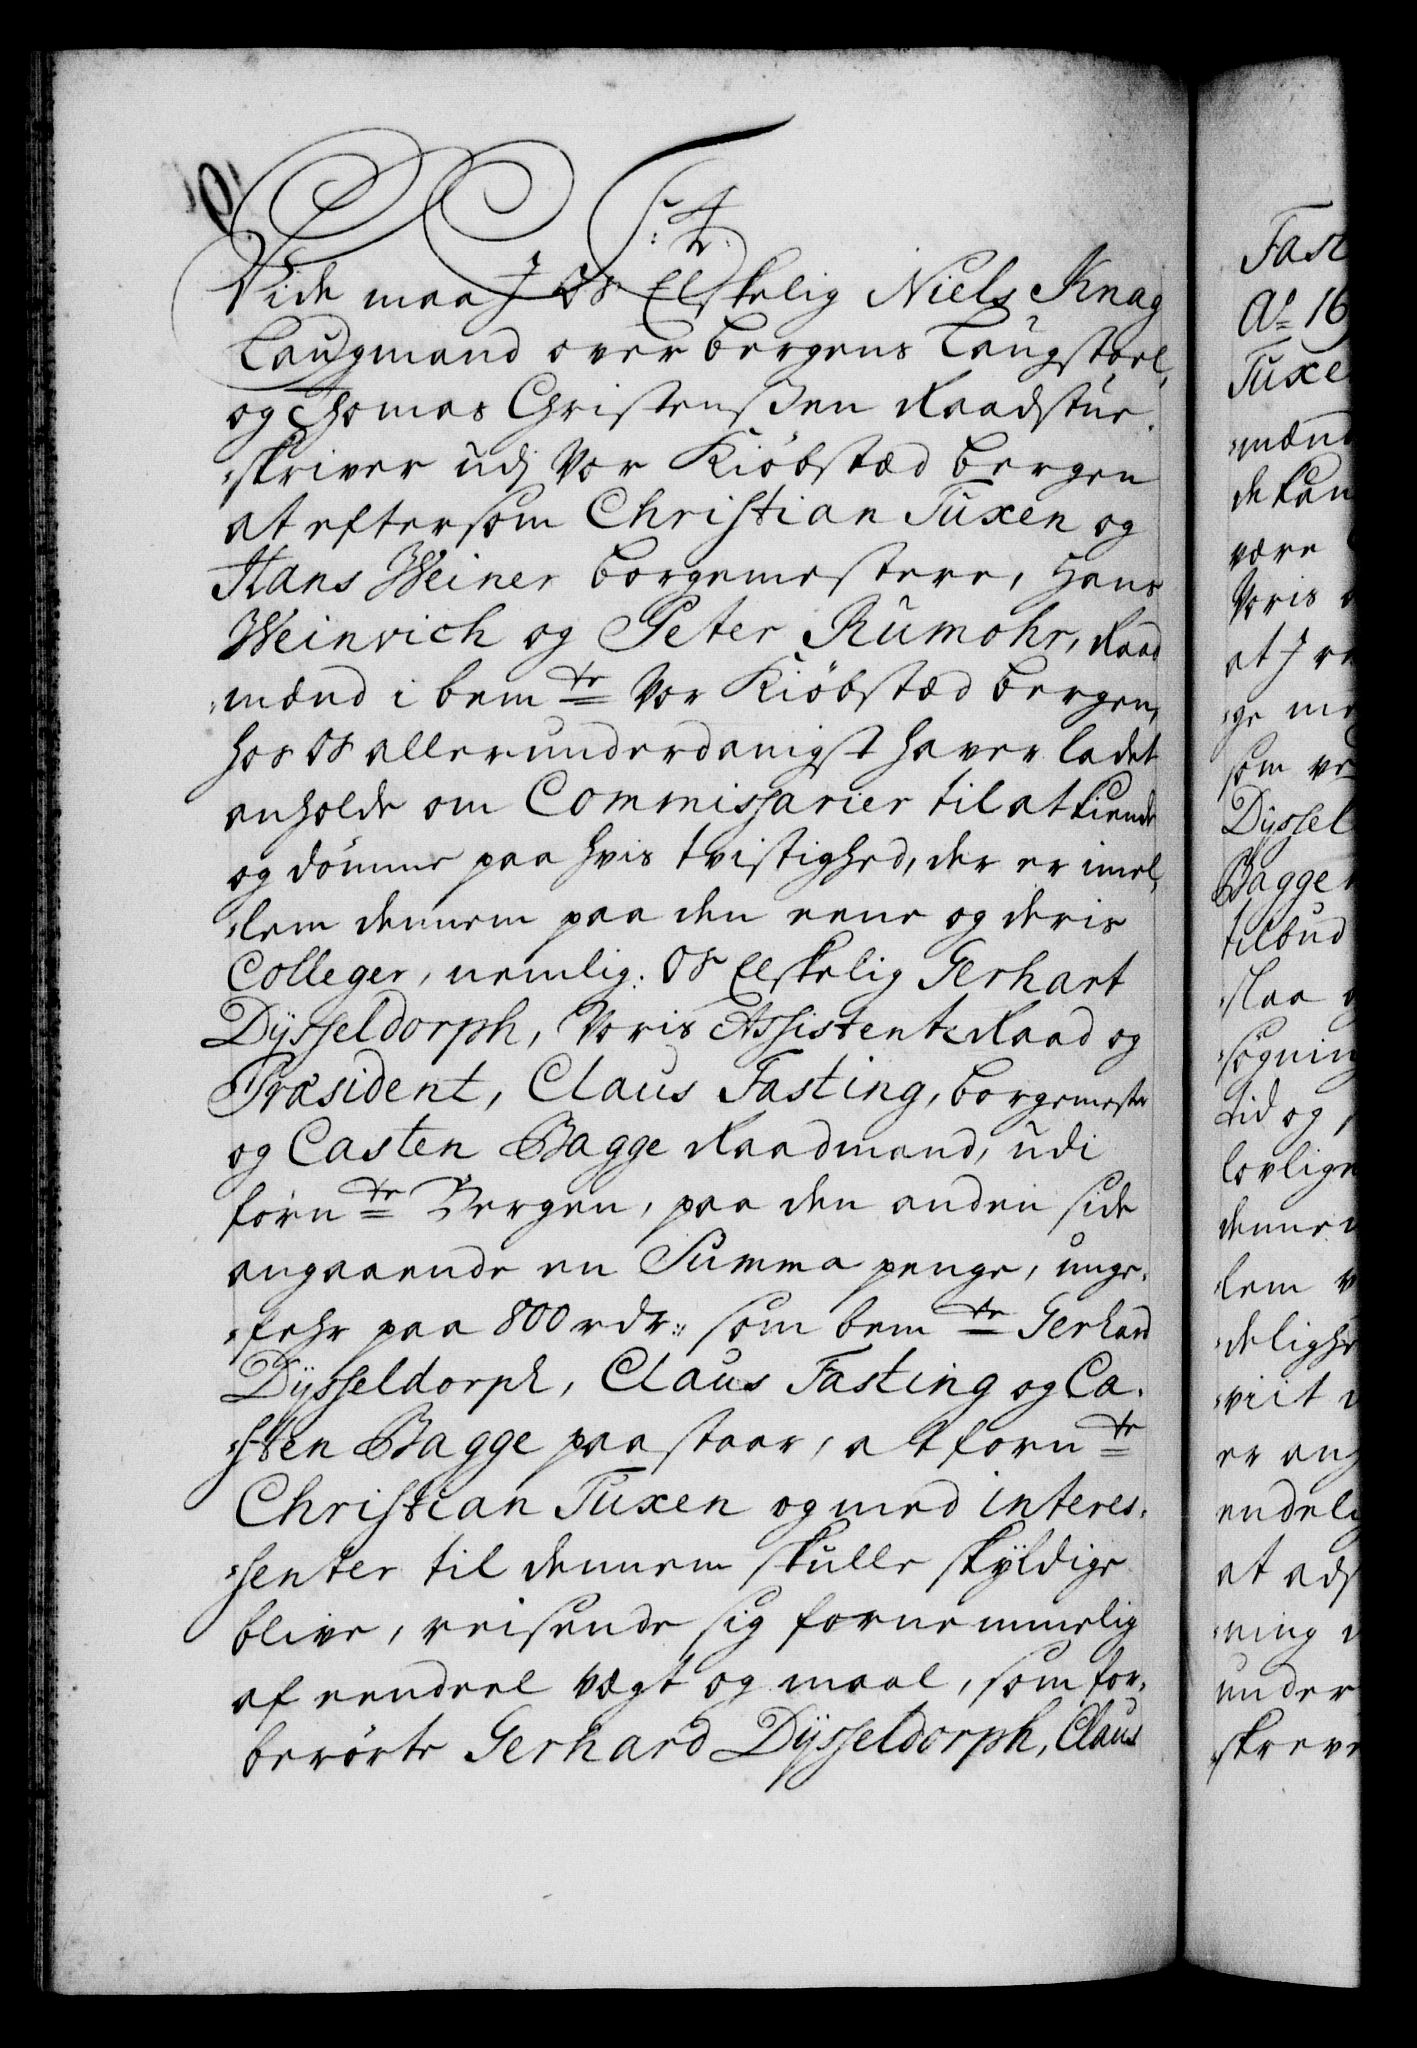 C C F: 4.
Vide maa I Os Elskelig Niels Knag
Laugmand over bergens Laugstoel,
og Thomas Christenßen Raadstue-
-skriver udj Vor Kiöbstæd bergen
at eftersom Christian Tuxen og
Hans Weiner borgemestere, Hans
Weinvich og Peter Rumohr, Raad
-mænd i bemte Vor Kiöbstæd bergen,
hos Os allerunderdanigst haver ladet
anholde om Commissarier til at kiende
og dömme paa hvis tvistighed, der er imel-
-lem dennem paa den eene og deris
Colleger, nemlig: Os Elskelig Gerhart
Dÿsseldorph, Voris Assistentz Raad og
Præsident, Claus Fasting, borgemester
og Casten Bagge Raadmand, udi
förnte Bergen, paa den anden side
angaaende en Summa penge, unge-
-fehr paa 800 rdr: som bemte Gerhard
Dÿsseldorph, Claus Fasting og Ca-
-sten Bagge paastaar, at fornte
Christian Tuxen og med interes-
-senter til dennem skulle skÿldige
blive, reisende sig fornemmelig
af eendeel vægt og maal, som for-
berörte Gerhard Dÿsseldorph, Claus
Fast
Ao 16
Tuxe
-mænd
de kan
være
Voris
at I
-ge me
som ve
Dÿssel
Bagge
tilbud
-slaa
-sögning
tid og
lovlige
denne
-lem
-delighe
-viit
er ang
endelig
at ads
-ning
under
skreve